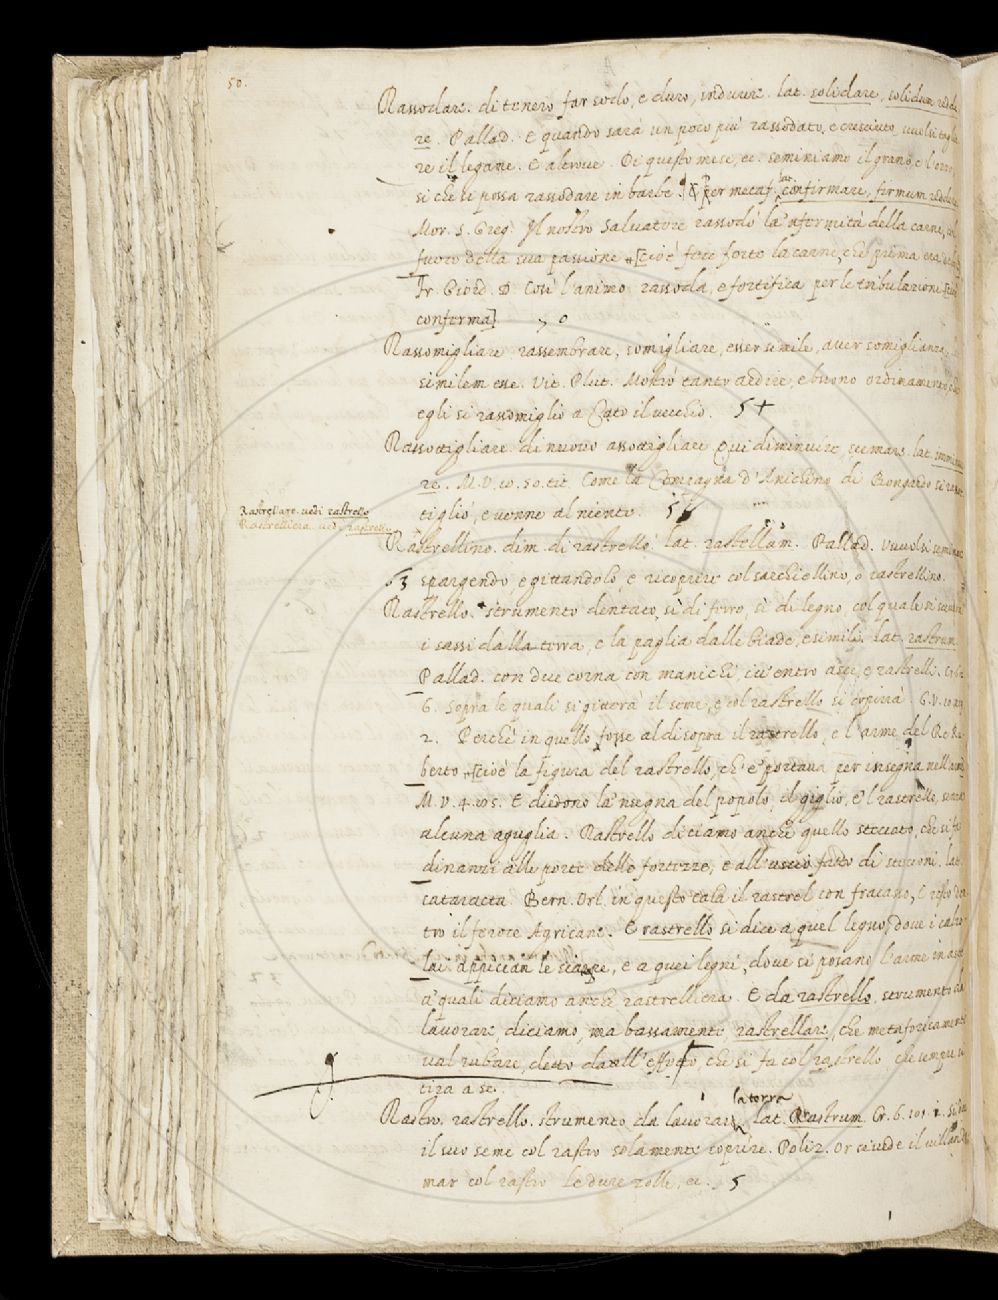 50.
Rassodare. di tenero far sodo, e duro, indurire. lat. solidare, solidum redde
re. Pallad. E quando sarà un poco più rassodato, e cresciuto, vuolsi taglia
re il legame. E altrove. Di questo mese, ec. seminiamo il grano, e l'orzo
si che si possa rassodare in barbe. Per metaf. lat. confirmare, firmum reddere
Mor. S. Greg. Il nostro Salvatore rassodò la 'nfermità della carne, col
fuoco della sua passione [cioè fece forte la carne, che prima era
Fr. Giord. D. Così l'animo rassoda, e fortifica per le tribulazioni [cioè
conferma]
Rassomigliare. rassembrare, somigliare, esser simile, aver somiglianza,
similem esse. Vit. Plut. Mostrò tanto ardire, e buono ordinamento, che
egli si rassomigliò a Cato il vecchio. 5
Rassottigliare. di nuovo assottigliare. Qui diminuire, scemare. lat. imminue
re. M.V. 10. 50. tit. Come la Compagna d'Anichino di Bongardo si rasot
Rastrellare. vedi rastrello
Rastrelliera. ved. rastrello
tigliò, e venne al niente. 5
Rastrellino. dim. di rastrello. lat. rastellum. Pallad. Vuolsi seminar
63 spargendo, e gittandolo, e ricoprire col sarchiellino, o rastrellino.
Rastrello. strumento dentato, sì di ferro, sì di legno, col quale si
i sassi dalla terra, e la paglia dalle biade, e simili. lat. rastrum.
Pallad. con due corna con manichi, ivi entro asce, e rastrelli. Cr.
6. Sopra le quali si gitterà il seme, e col rastrello si coprirà. G.V. 10.
2. Perchè in quello fosse al disopra il rastrello, e l'arme del Re Ru
berto [cioè la figura del rastrello, ch'e' portava per insegna nell'arme
M.V. 4. Diedono la 'nsegna del popolo, il giglio, e 'l rastrello, senza
alcuna aguglia. Rastrello diciamo anche quello steccato, che si fa
dinanzi alle porte delle fortezze, e all'uscio fatto di stecconi. lat.
cataracta. Bern. Orl. in questo cala il rastrel con fracasso, E restò den
tro il feroce Agricane. E rastrello si dice a quel legno, dove i calzo
lai appiccan le scarpe, e a quei legni, dove si posano l'arme in asta
a' quali diciamo anche rastrelliera. E da rastrello, strumento da
lavorare, diciamo, ma bassamente, rastrellare, che metaforicamente
val rubare, detto dall'effetto, che si fa col rastrello, che sempre
tira a se.
Rastro. rastrello. strumento da lavorar la terra lat. Rastrum. Cr. 6. 101. 1.
il suo seme col rastro solamente coprire. Poliz. Or si vede il villan
mar col rastro le dure zolle, ec. 5